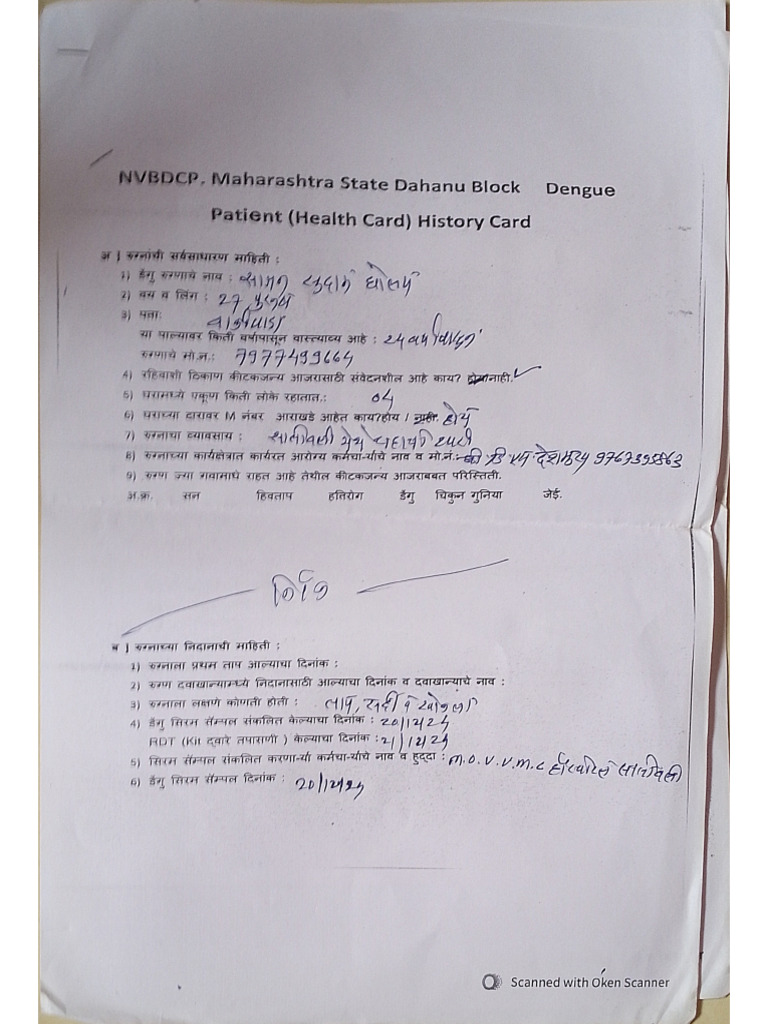 NVBDCP. Maharashtra State Dahanu Block Dengue
Patient (Health Card) History Card
अ ] रुग्नांची सर्वसाधारण माहिती :
1) डेंगु रुग्णाचे नाव : सुदाम
2) वय व लिंग : 27 पुरुष
3) पत्ताः
या पाल्यावर किती वर्षापासून वास्त्याव्य आहे : 24 वर्षापासुन
रुग्णाचे मो.नं.: 7977499664
4) रहिवाशी ठिकाण कीटकजन्य आजरासाठी संवेदनशील आहे काय? होय/नाही.✓
5) घरामध्ये एकूण किती लोके रहातात.: 04
6) घराच्या दारावर M नंबर आराखडे आहेत काय?होय / नाही. होय
7) रुग्नाचा व्यावसाय :
8) रुग्नाच्या कार्यक्षेत्रात कार्यरत आरोग्य कर्मचा-यांचे नाव व मो.नं.: देशमुख 9767395863
9) रुग्ण ज्या गवामाधे राहत आहे तेथील कीटकजन्य आजराबबत परिस्तिती.
अ.क्र. सन हिवताप हतिरोग डेंगु चिकुन गुनिया जेई.
निरंक
ब ] रुग्नाच्या निदानाची माहिती :
1) रुग्नाला प्रथम ताप आल्याचा दिनांक :
2) रुग्ण दवाखान्यामध्ये निदानासाठी आल्याचा दिनांक व दवाखान्याचे नाव :
3) रुग्नाला लक्षणे कोणती होती : ताप, सर्दी व खोकला
4) डेंगु सिरम सॅम्पल संकलित केल्याचा दिनांक : 20/12/24
RDT (Kit द्वारे तपासणी ) केल्याचा दिनांक : 21/12/24
5) सिरम सॅम्पल संकलित करणा-र्या कर्मचा-र्यांचे नाव व हुद्दा : M.O. V.V.M.C हॉस्पिटल सातीवली
6) डेंगु सिरम सॅम्पल दिनांक : 20/12/24
Scanned with Oken Scanner